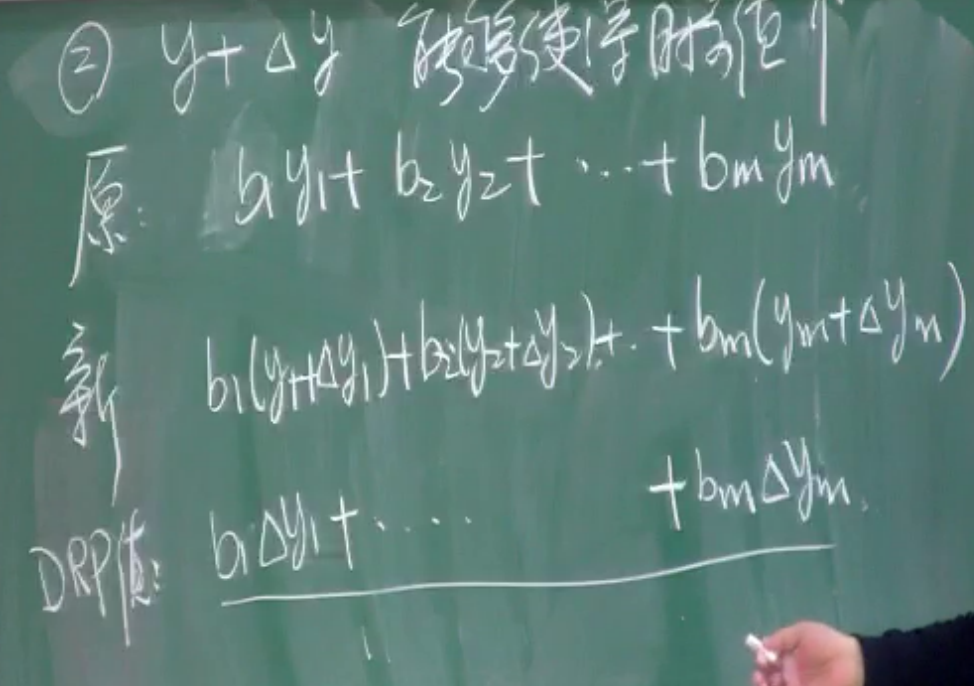 ② y+Δy 能够使得目标值↑
原: b₁y₁+ b₂y₂+ ···+ bₘyₘ
新 b₁(y₁+Δy₁)+b₂(y₂+Δy₂)+··+bₘ(yₘ+Δyₘ)
DRP值: b₁Δy₁+····· +bₘΔyₘ.